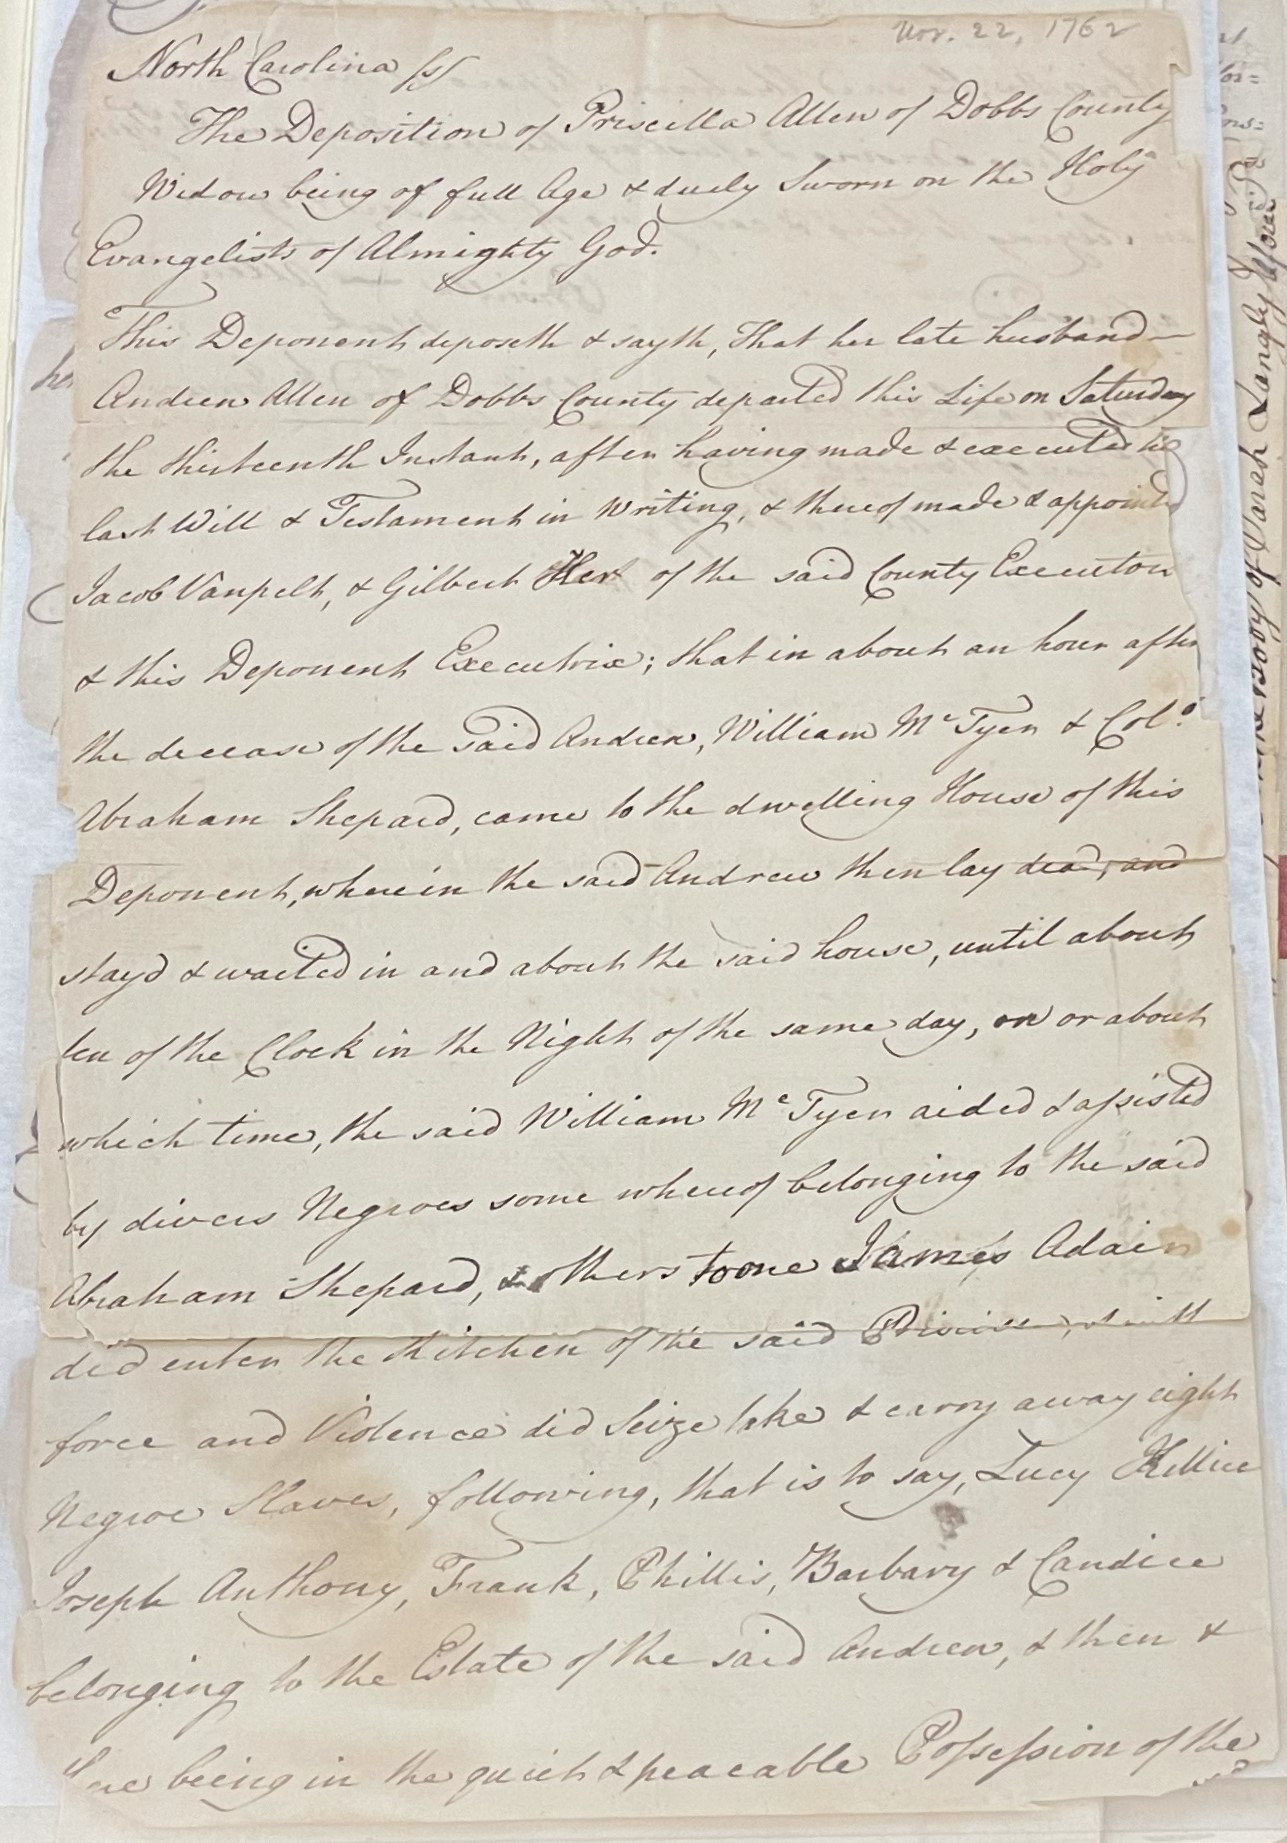 Nov. 22, 1762
North Carolina ss
The Deposition of Priscilla Allen of Dobbs County
Widow being of full Age & duely Sworn on the Holy
Evangelists of Almighty God.
This Deponent deposeth & sayth, That her late husband
Andrew Allen of Dobbs County departed this Life on Saturday
the thirteenth Instant, after having made & executed his
last Will & Testament in Writing, & thereof made & appointed
Jacob Vanpelt, & Gilbert Ker of the said County Executors
& this Deponent Executrix; that in about an hour after
the decease of the said Andrew, William McTyer & Colo.
Abraham Shepard, came to the dwelling House of this
Deponent, wherein the said Andrew then lay dead, and
stayd & waited in and about the said house, until about
ten of the Clock in the Night of the same day, on or about
which time, the said William McTyer aided & assisted
by divers Negroes some whereof belonging to the said
Abraham Shepard, & others to one James Adair
did enter the Kitchen of the said & with
force and Violence did Seize take & carry away eight
Negroe Slaves, following, that is to say, Lucy
Joseph Anthony, Frank, Phillis, Barbary & Candice
belonging to the Estate of the said Andrew, & then &
there being in the quiet & peaceable Possession of the
said